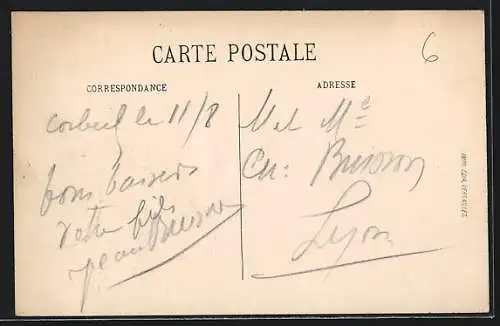 CARTE POSTALE
6
CORRESPONDANCE
ADRESSE
Corbeil le 11/8
bons baisers
votre fils
Jean Buisson
M et Me
Ch: Buisson
Lyon